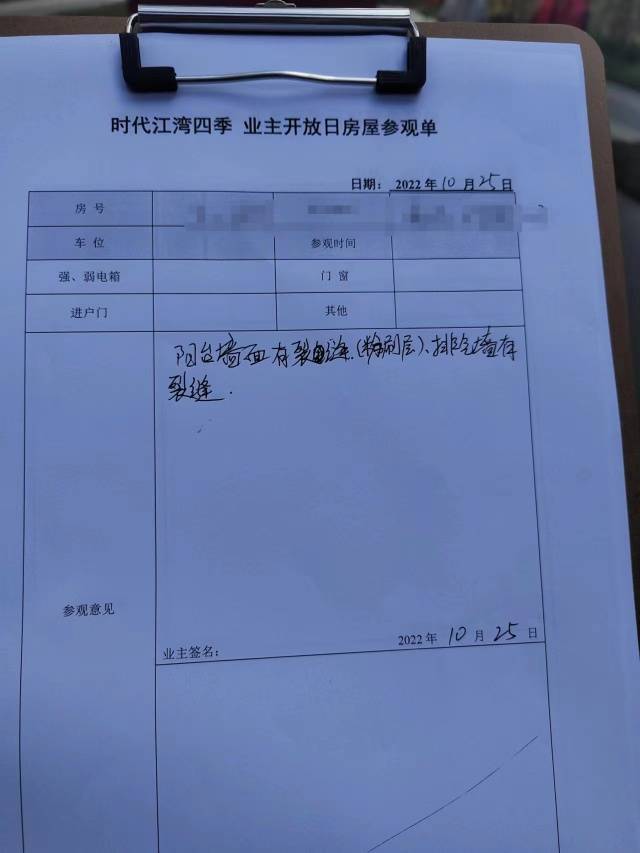 时代江湾四季 业主开放日房屋参观单
日期： 2022 年 10 月 25 日
房 号
车 位 参观时间
强、弱电箱 门 窗
进户门 其他
阳台墙面有裂缝（粉刷层）、排烟墙存
裂缝．
参观意见
2022 年 10 月 25 日
业主签名：